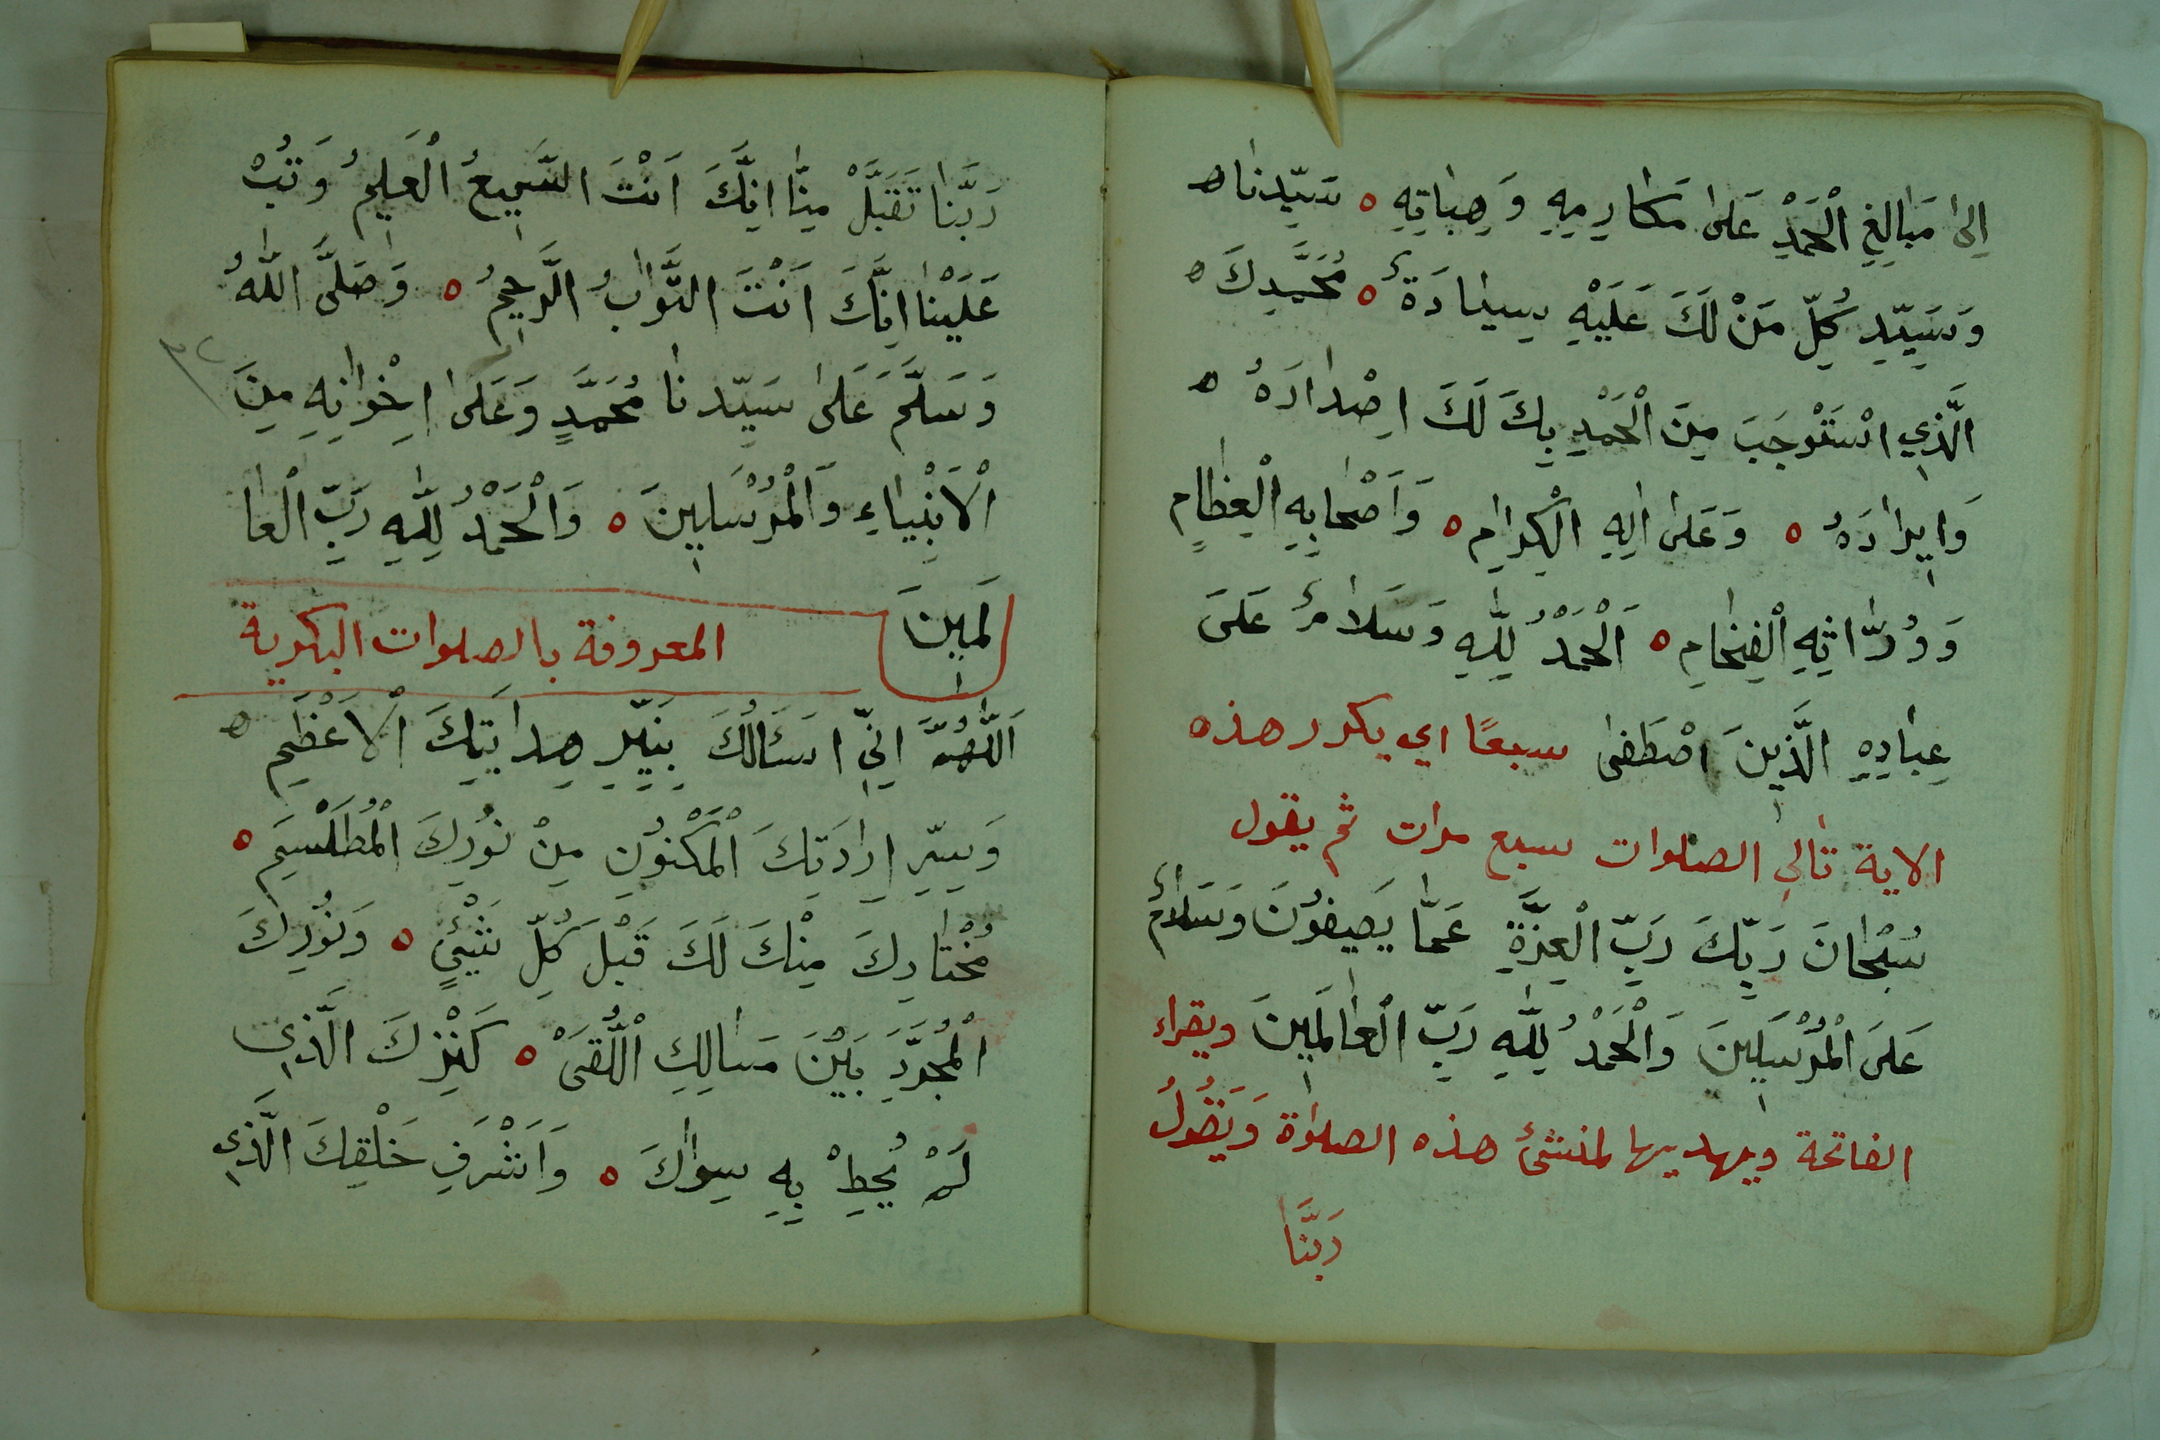 اِلىٰ مَبَالِغِ الْحَمْدِ عَلىٰ مَكَارِمِهِ وَهِبَاتِهِ ه سَيِّدِنَا ه
وَسَيِّدِ كُلِّ مَنْ لَكَ عَلَيْهِ سِيَادَةٌ ه مُحَمَّدِكَ ه
الَّذِي اسْتَوْجَبَ مِنَ الْحَمْدِ بِكَ لَكَ اِصْدَارَهُ ه
وَايرَادَهُ ه وَعَلىٰ اٰلِهِ الْكِرَامِ ه وَاَصْحَابِهِ الْعِظَامِ
وَوُرَّاثِهِ الْفِخَامِ ه اَلْحَمْدُ لِلّٰهِ وَسَلَامٌ عَلىَ
عِبَادِهِ الَّذِينَ اصْطَفىٰ سبعًا اي يكرر هذه
الاية تالي الصلوات سبع مرات ثم يقول
سُبْحَانَ رَبِّكَ رَبِّ الْعِزَّةِ عَمَّا يَصِفُونَ وَسَلَامٌ
عَلىَ الْمُرْسَلِينَ وَالْحَمْدُ لِلّٰهِ رَبِّ الْعَالَمِينَ ويقراء
الفاتحة ويهديها لمنشئ هذه الصلواة وَيَقُولُ
رَبَّنَا
رَبَّنَا تَقَبَّلْ مِنَّا اِنَّكَ اَنْتَ السَّمِيعُ الْعَلِيمُ وَتُبْ
عَلَيْنَا اِنَّكَ اَنْتَ التَّوَّابُ الرَّحِيمُ ه وَصَلَّى اللّٰهُ
وَسَلَّمَ عَلىٰ سَيِّدنَا مُحَمَّدٍ وَعَلىٰ اِخْوَانِهِ مِنَ
الْاَنْبِيَاءِ وَالْمُرْسَلِينَ ه وَالْحَمْدُ لِلّٰهِ رَبِّ الْعَا
لَمِينَ المعروفة بالصلوات البكرية
اَللّٰهُمَّ اِنِّي اَسْئَالُكَ بِنَيِّرِ هِدَايَتِكَ الْاَعْظَمِ ه
وَسِرِّ اِرَادَتِكَ الْمَكْنُونِ مِنْ نُورِكَ الْمُطَلْسَمِ ه
مُخْتَارِكَ مِنْكَ لَكَ قَبْلَ كُلِّ شَيْئٍ ه وَنُورِكَ
الْمُجَرَّدِ بَيْنَ مَسَالِكِ اللُّقىَ ه كَنْزِكَ الَّذِي
لَمْ يُحِطْ بِهِ سِوَاكَ ه وَاَشْرَفِ خَلْقِكَ الَّذِي